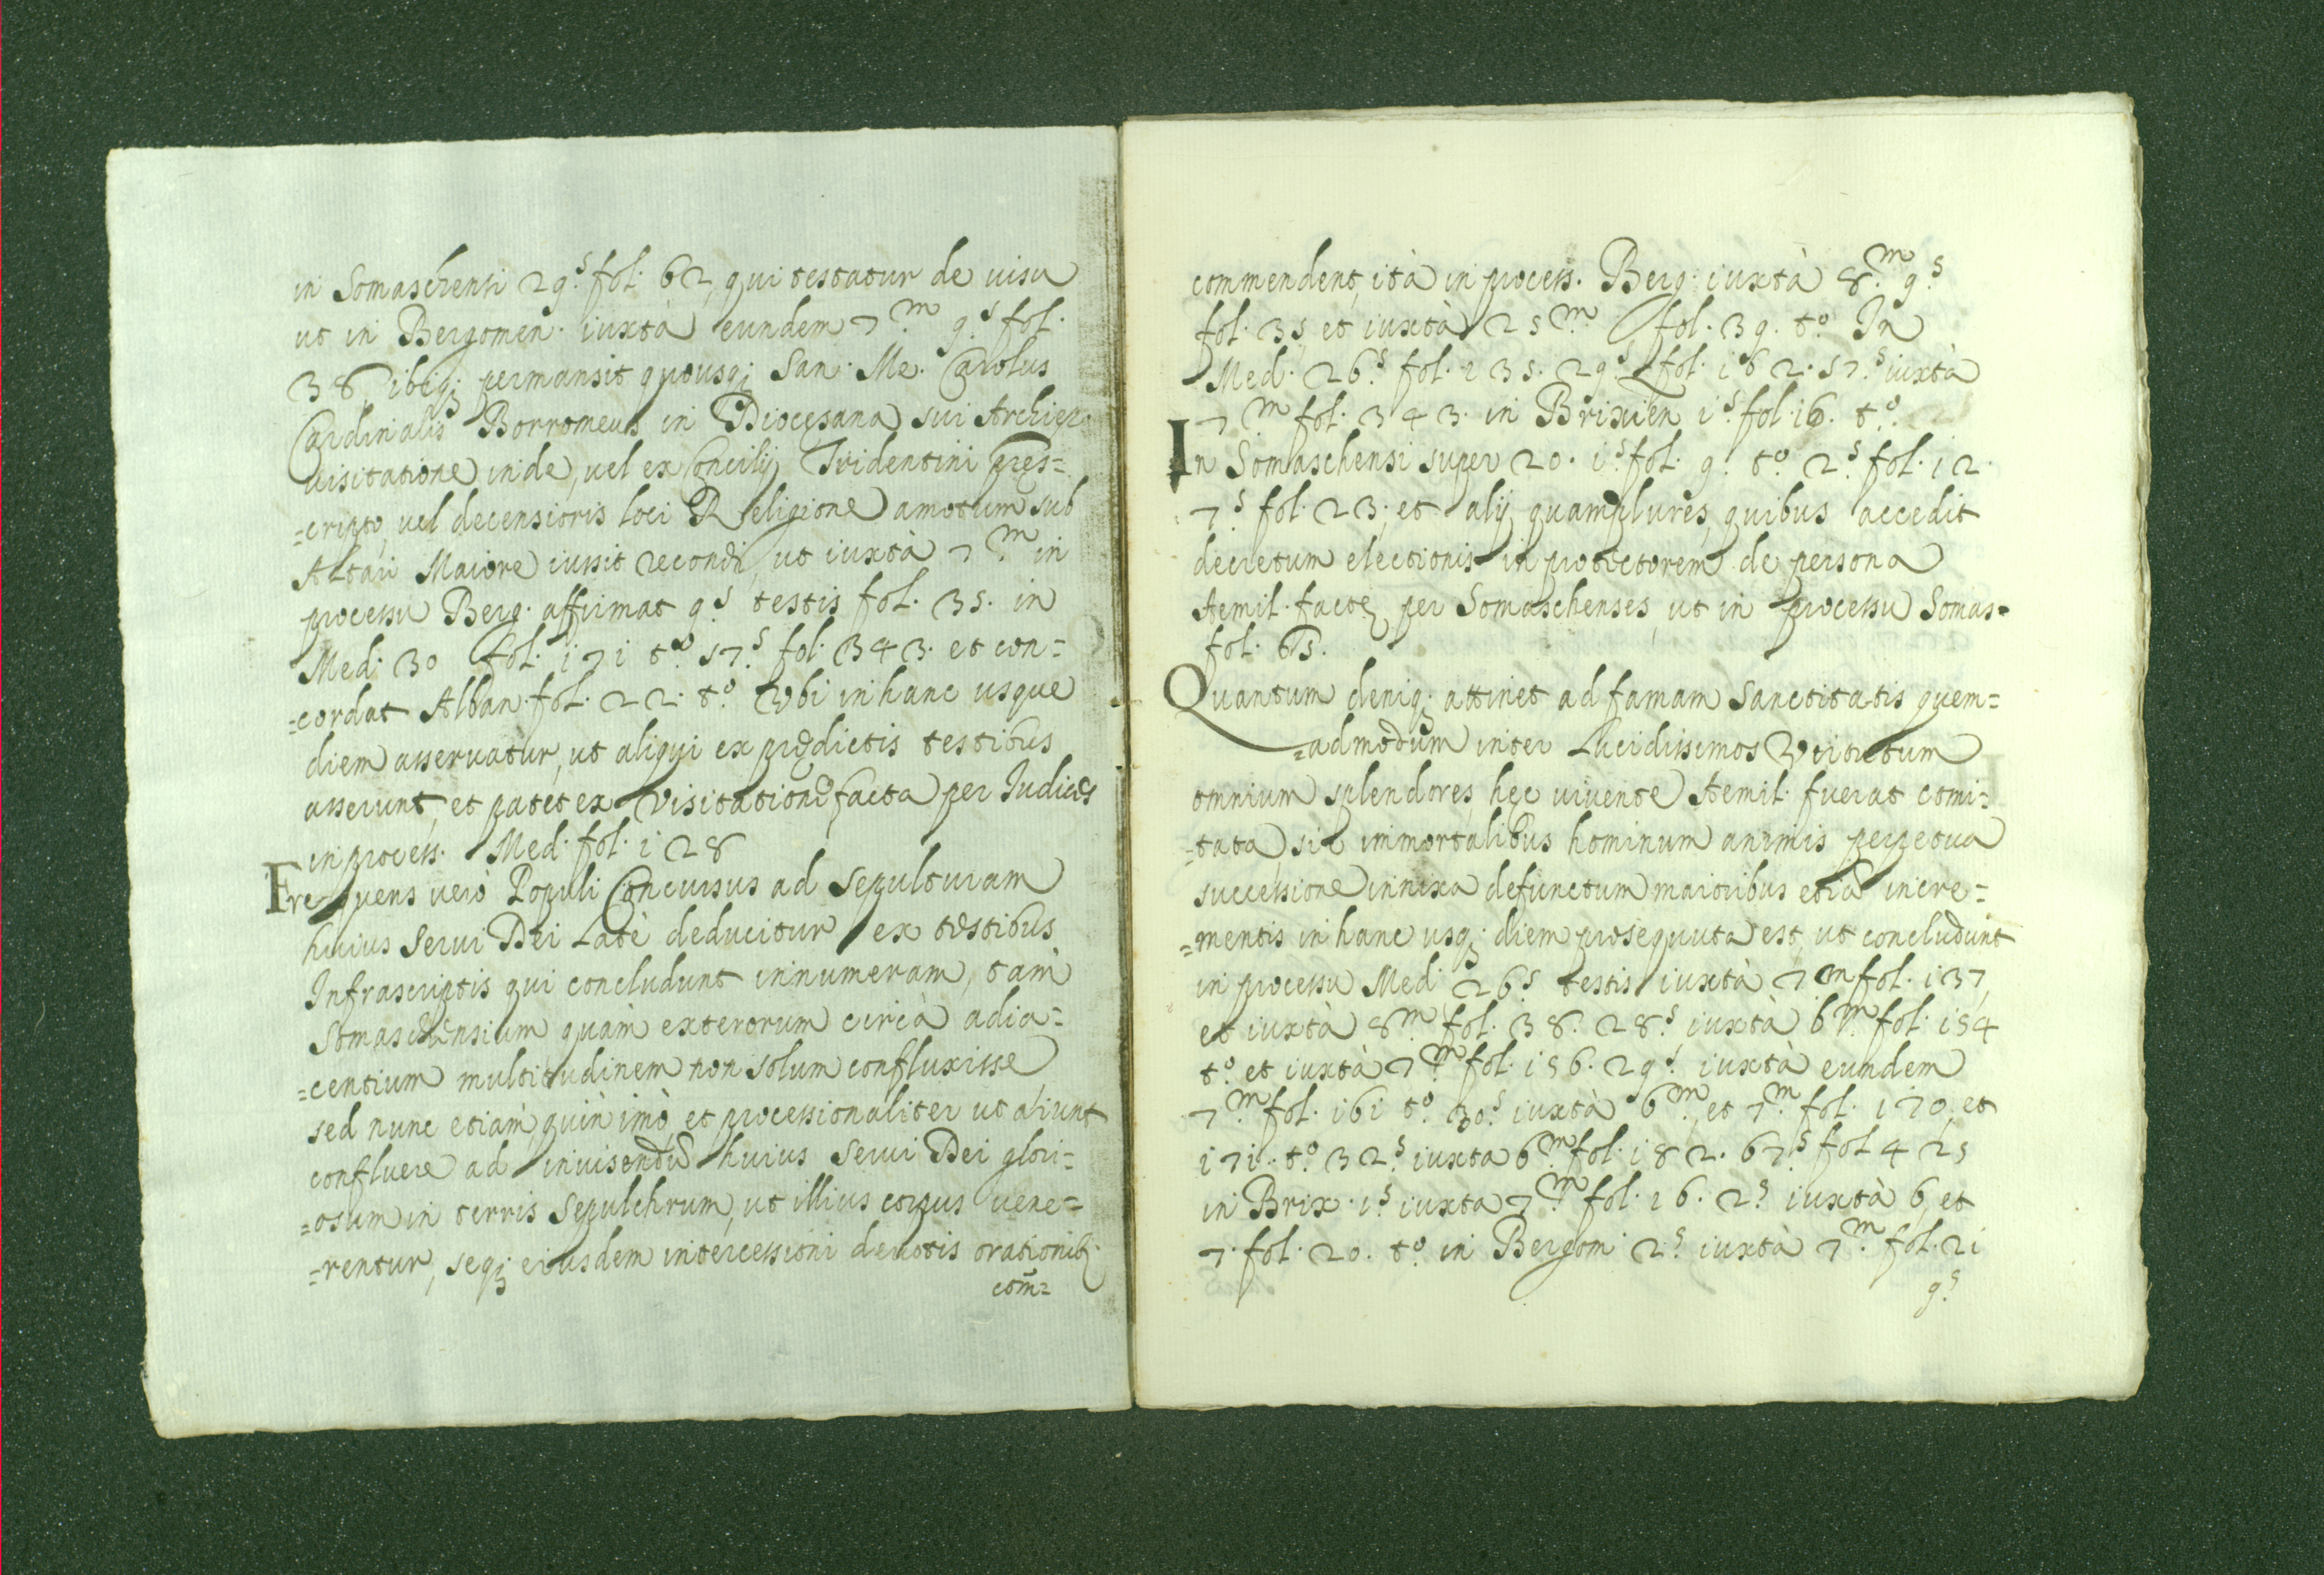 in Somaschensi 29.s fol. 62, qui testatur de uisu
ut in Bergomen. iuxtà eundem 7.m 9.s fol.
38, ibiq; permansit quousq; San. Me. Carolus
Cardinalis Borromeus in Diocęsana sui Archiep.
uisitatione inde, uel ex Concilij Tridentini pręs=
=cripto, uel decensioris loci Religione amotum sub
Altari Maiore iussit recondi, ut iuxtà 7.m in
processu Berg. affirmat 9.s testis fol. 35. in
Med. 30 fol. i7i t.o 57.s fol. 343. et con=
=cordat Alban. fol. 22. t.o Vbi in hanc usque
diem asseruatur, ut aliqui ex prędictis testibus
asserunt, et patet ex Visitatione facta per Iudices
in process. Med. fol. i28
Frequens verò Populi Concursus ad Sepulturam
huius Serui Dei Latè deducitur ex testibus
Infrascriptis qui concludunt innumeram, tam
Somaschensium quàm exterorum circà adia=
=centium multitudinem non solum confluxisse
sed nunc etiam, quin imò, et processionaliter ut aliunt
confluere ad inuisendũ huius Serui Dei glori=
=osum in terris Sepulchrum, ut illius corpus uene=
=rentur, seq; eiusdem intercessioni deuotis orationib;
com̃=
commendent, ità in process. Berg. iuxtà 8.m 9.s
fol. 35, et iuxtà 25.m fol. 39. t.o In
Med. 26.s fol. i35. 29.s fol. i62. 57.s iuxtà
7.m fol. 343. in Brixien i.s fol. i6. t.o
In Somaschensi super 20. i.s fol. 9. t.o 2.s fol. i2.
7.s fol. 23. et alij quamplures, quibus accedit
decretum electionis in protectorem de persona
Aemil. factę per Somaschenses, ut in processu Somas=
fol. 65.
Quantum deniq; attinet ad famam Sanctitatis quem=
=admodum inter Lucidissimos Virtutum
omnium splendores, hęc uiuente Aemil. fuerat comi=
=tata sic immortalibus hominum animis perpetua
successione innixa defunctum maioribus etiã incre=
=mentis in hanc usq; diem prosequuta est, ut concludunt
in processu Med. 26.s testis iuxtà 7.m fol. i37,
et iuxtà 8.m fol. 38. 28.s iuxtà 6.m fol. i54
t.o et iuxtà 7.m fol. i56. 29.s iuxtà eundem
7.m fol. i6i t.o 30.s iuxtà 6.m et 7.m fol. i70, et
i7i. t.o 32.s iuxta 6.m fol. i82. 67.s fol 425
in Brix. i.s iuxta 7.m fol. i6. 2.s iuxtà 6, et
7. fol. 20. t.o in Bergom. 2.s iuxtà 7.m fol. 2i
9.s